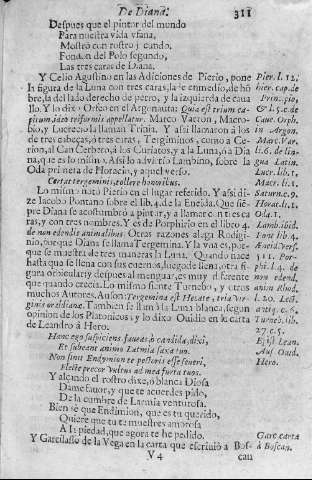 De Diana. 311
Despues que el pintor del mundo
Para nuestra vida vfana,
Mostrò con rostro jocundo,
Fondon del Polo segundo,
Las tres caras de Diana.
Y Celio Agustino en las Adiciones de Pierio, pone
la figura de la Luna con tres caras, la de enmedio, de hõ
bre, la del lado derecho de perro, y la izquierda de caua
llo. Y lo dixo Orfeo en el Argonauta: Quia est trium ca-
pitum ideò triformis appellatur. Marco Varron, Macro-
bio, y Lucrecio la llaman Triuia. Y assi llamaron à los
de tres cabeças, ò tres caras, Tergiminos, como a Ce-
rion, al Can Cerbero, à los Curiacios, y a la Luna, ò à Dia
na, que es lo mismo. Assi lo aduirtiò Lambino, sobre la
Oda primera de Horacio, y aquel verso.
Certat tergeminis tollere honoribus.
Lo mismo nota Pierio en el lugar referido. Y assi di-
ze Iacobo Pontano sobre el lib. 4. de la Eneida. Que siē-
pre Diana se acostumbrò a pintar, y a llamar con tres ca
ras, y con tres nombres. Y es de Porphirio en el libro 4.
de non edendis animalibus Otras razones alega Rodigi-
nio, porque Diana se llama Tergemina. Y la vna es, por-
que se muestra de tres maneras la Luna. Quando nace
hasta que se llena con sus cuernos, luego de llena, otra fi-
gura orbicular, y despues al menguar, es muy diferente
que quando crecia. Lo mismo siente Turnebo, y otros
muchos Autores, Auson: Tergemina est Hecate, tria Vir-
ginis ora Dianæ. Tambien se llamò la Luna blanca, segun
opinion de los Platonicos, y lo dixo Ouidio en la carta
de Leandro à Hero.
Hanc ego suspiciens, faueas, ò candida, dixi,
Et subeant animo Latmia saxa tuo.
Non sinit Endymion te pectoris esse seueri,
Flecte precor vultus ad mea furta tuos.
Y alçando el rostro dixe, ò blanca Diosa
Dame fauor, y que te acuerdes pido,
De la cumbre de Larmia venturosa.
Bien sè que Endimion, que es tu querido,
Quiere que tu te muestres amorosa
A la piedad, que agora te he pedido.
Y Garcilasso de la Vega en la carta que escriuiò a Bos-
V 4 can
Pier. l. 12.
hier. cap. de
Principio,
& l. 5. c. de
Caue. Orph.
in Argon.
Marc. Var.
li. 6. de lin-
gua Latin.
Luc. lib. 1.
Macr. li. 1.
Saturn. c. 9.
Horat. li. 1.
Oda. 1.
Lamb. ibid.
Pont lib 4.
Aeneid. Vers.
511. Por-
phi. l. 4. de
non edend.
anim Rhod.
l. 20. Lect.
antiq. c. 6.
Turneb. lib.
27. c. 5.
Epist. Lean.
Aus. Ouid.
Hero.
Garc. carta
à Boscan.